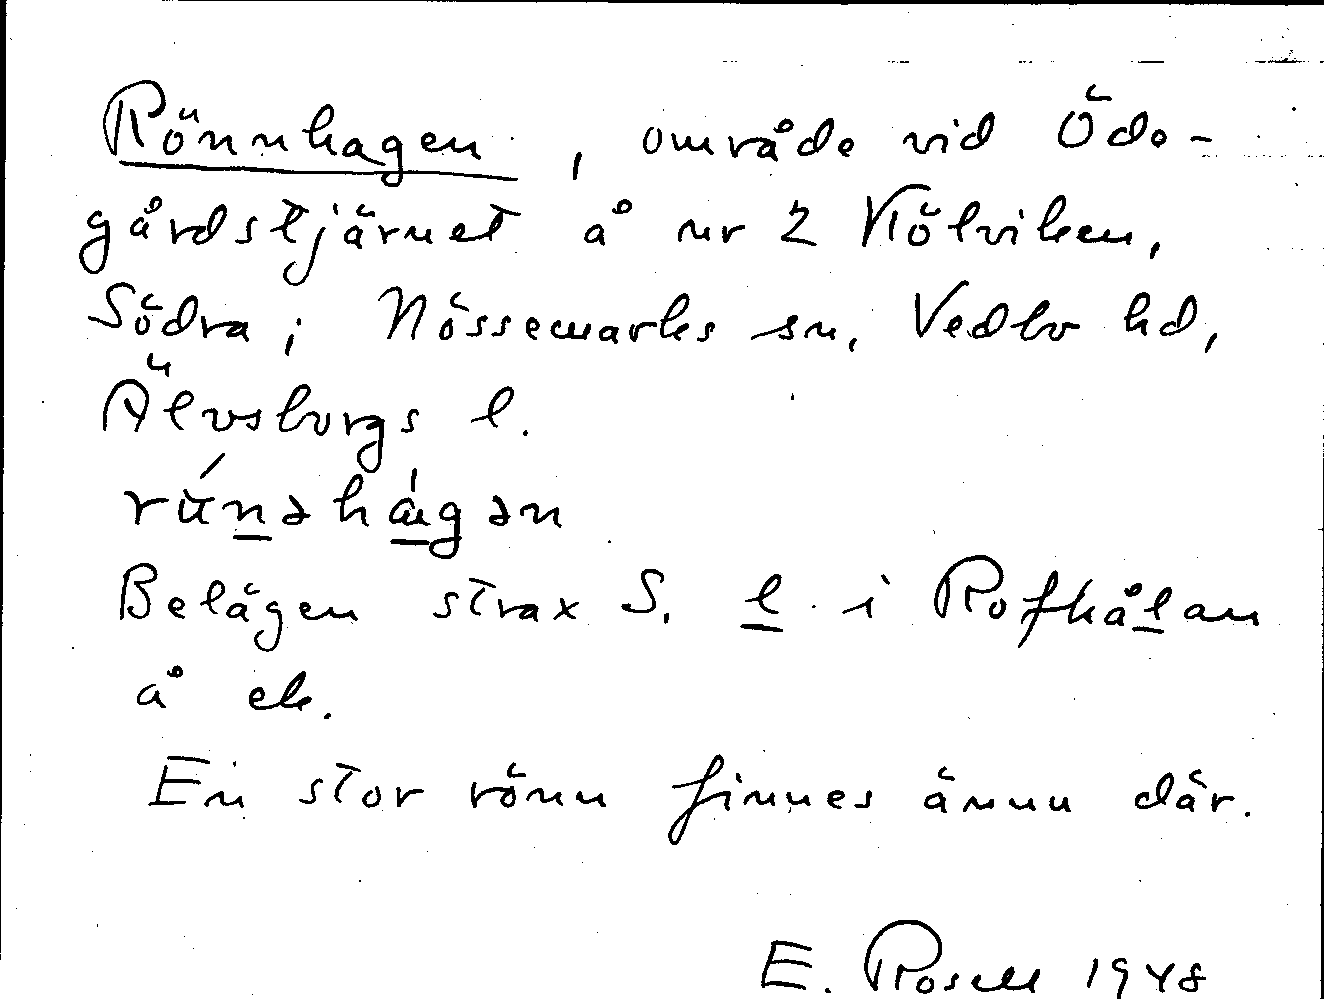 Rönnhagen, område vid Öde-
gårdstjärnet å nr 2 Kölviken,
Södra; Nössemarks sn, Vedbo hd,
Älvsborgs l.
rúnəhágən
Belägen strax S. l i Rofhålan
å ek.
En stor rönn finnes ännu där.
E. Rosell 1948